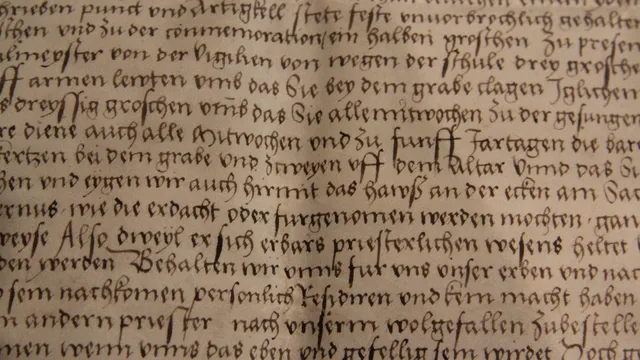 schrieben punct und Artigkell stete feste unvorbrochlich gehalten
schen und zu der commemoration ein halben groschen zu presen
ulmeyster von der vigilien von wegen der schule drey grosche
uff armen lewten umb das Sie bey dem grabe clagen Iglichem
s dreyssig groschen umb das Sie alle mitwochen zu der gesungen
re diene auch alle Mitwochen und zu funff Jartagen die bar
kertzen bei dem grabe und zcweyen uff dem Altar unnd das Si
hen und eygen wir auch hirmit das hawß an der ecken am Sa
ernus, wie die erdacht oder furgenomen werden mochten, gan
weyse Also dweyl er sich erbars priesterlichen wesens heltet
den werden Behalten wir unns fur uns unser erben und nac
sein nachkomen personlich Residiren und kein macht haben
n andern priester nach unserm wolgefallen zubestelle
men wenn unns das eben und gefellig sein wirdet Doch